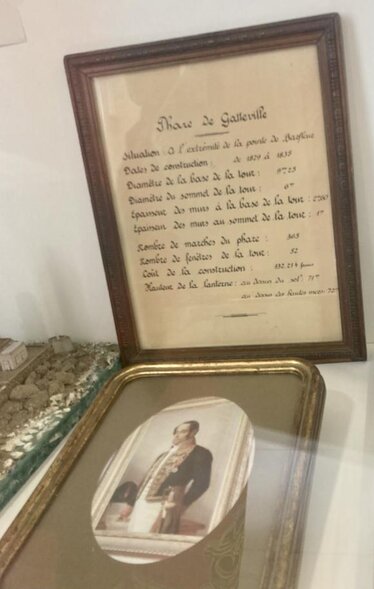 Phare de Gatteville
Situation : à l'extrémité de la pointe de Barfleur
Dates de construction : de 1829 à 1835
Diamètre de la base de la tour : 9m25
Diamètre du sommet de la tour : 6m
Épaisseur des murs à la base de la tour :
Épaisseur des murs au sommet de la tour : 1m
Nombre de marches du phare : 365
Nombre de fenêtres de la tour : 52
Coût de la construction :
Hauteur de la lanterne : au dessus du sol 71m
au dessus des hautes mers